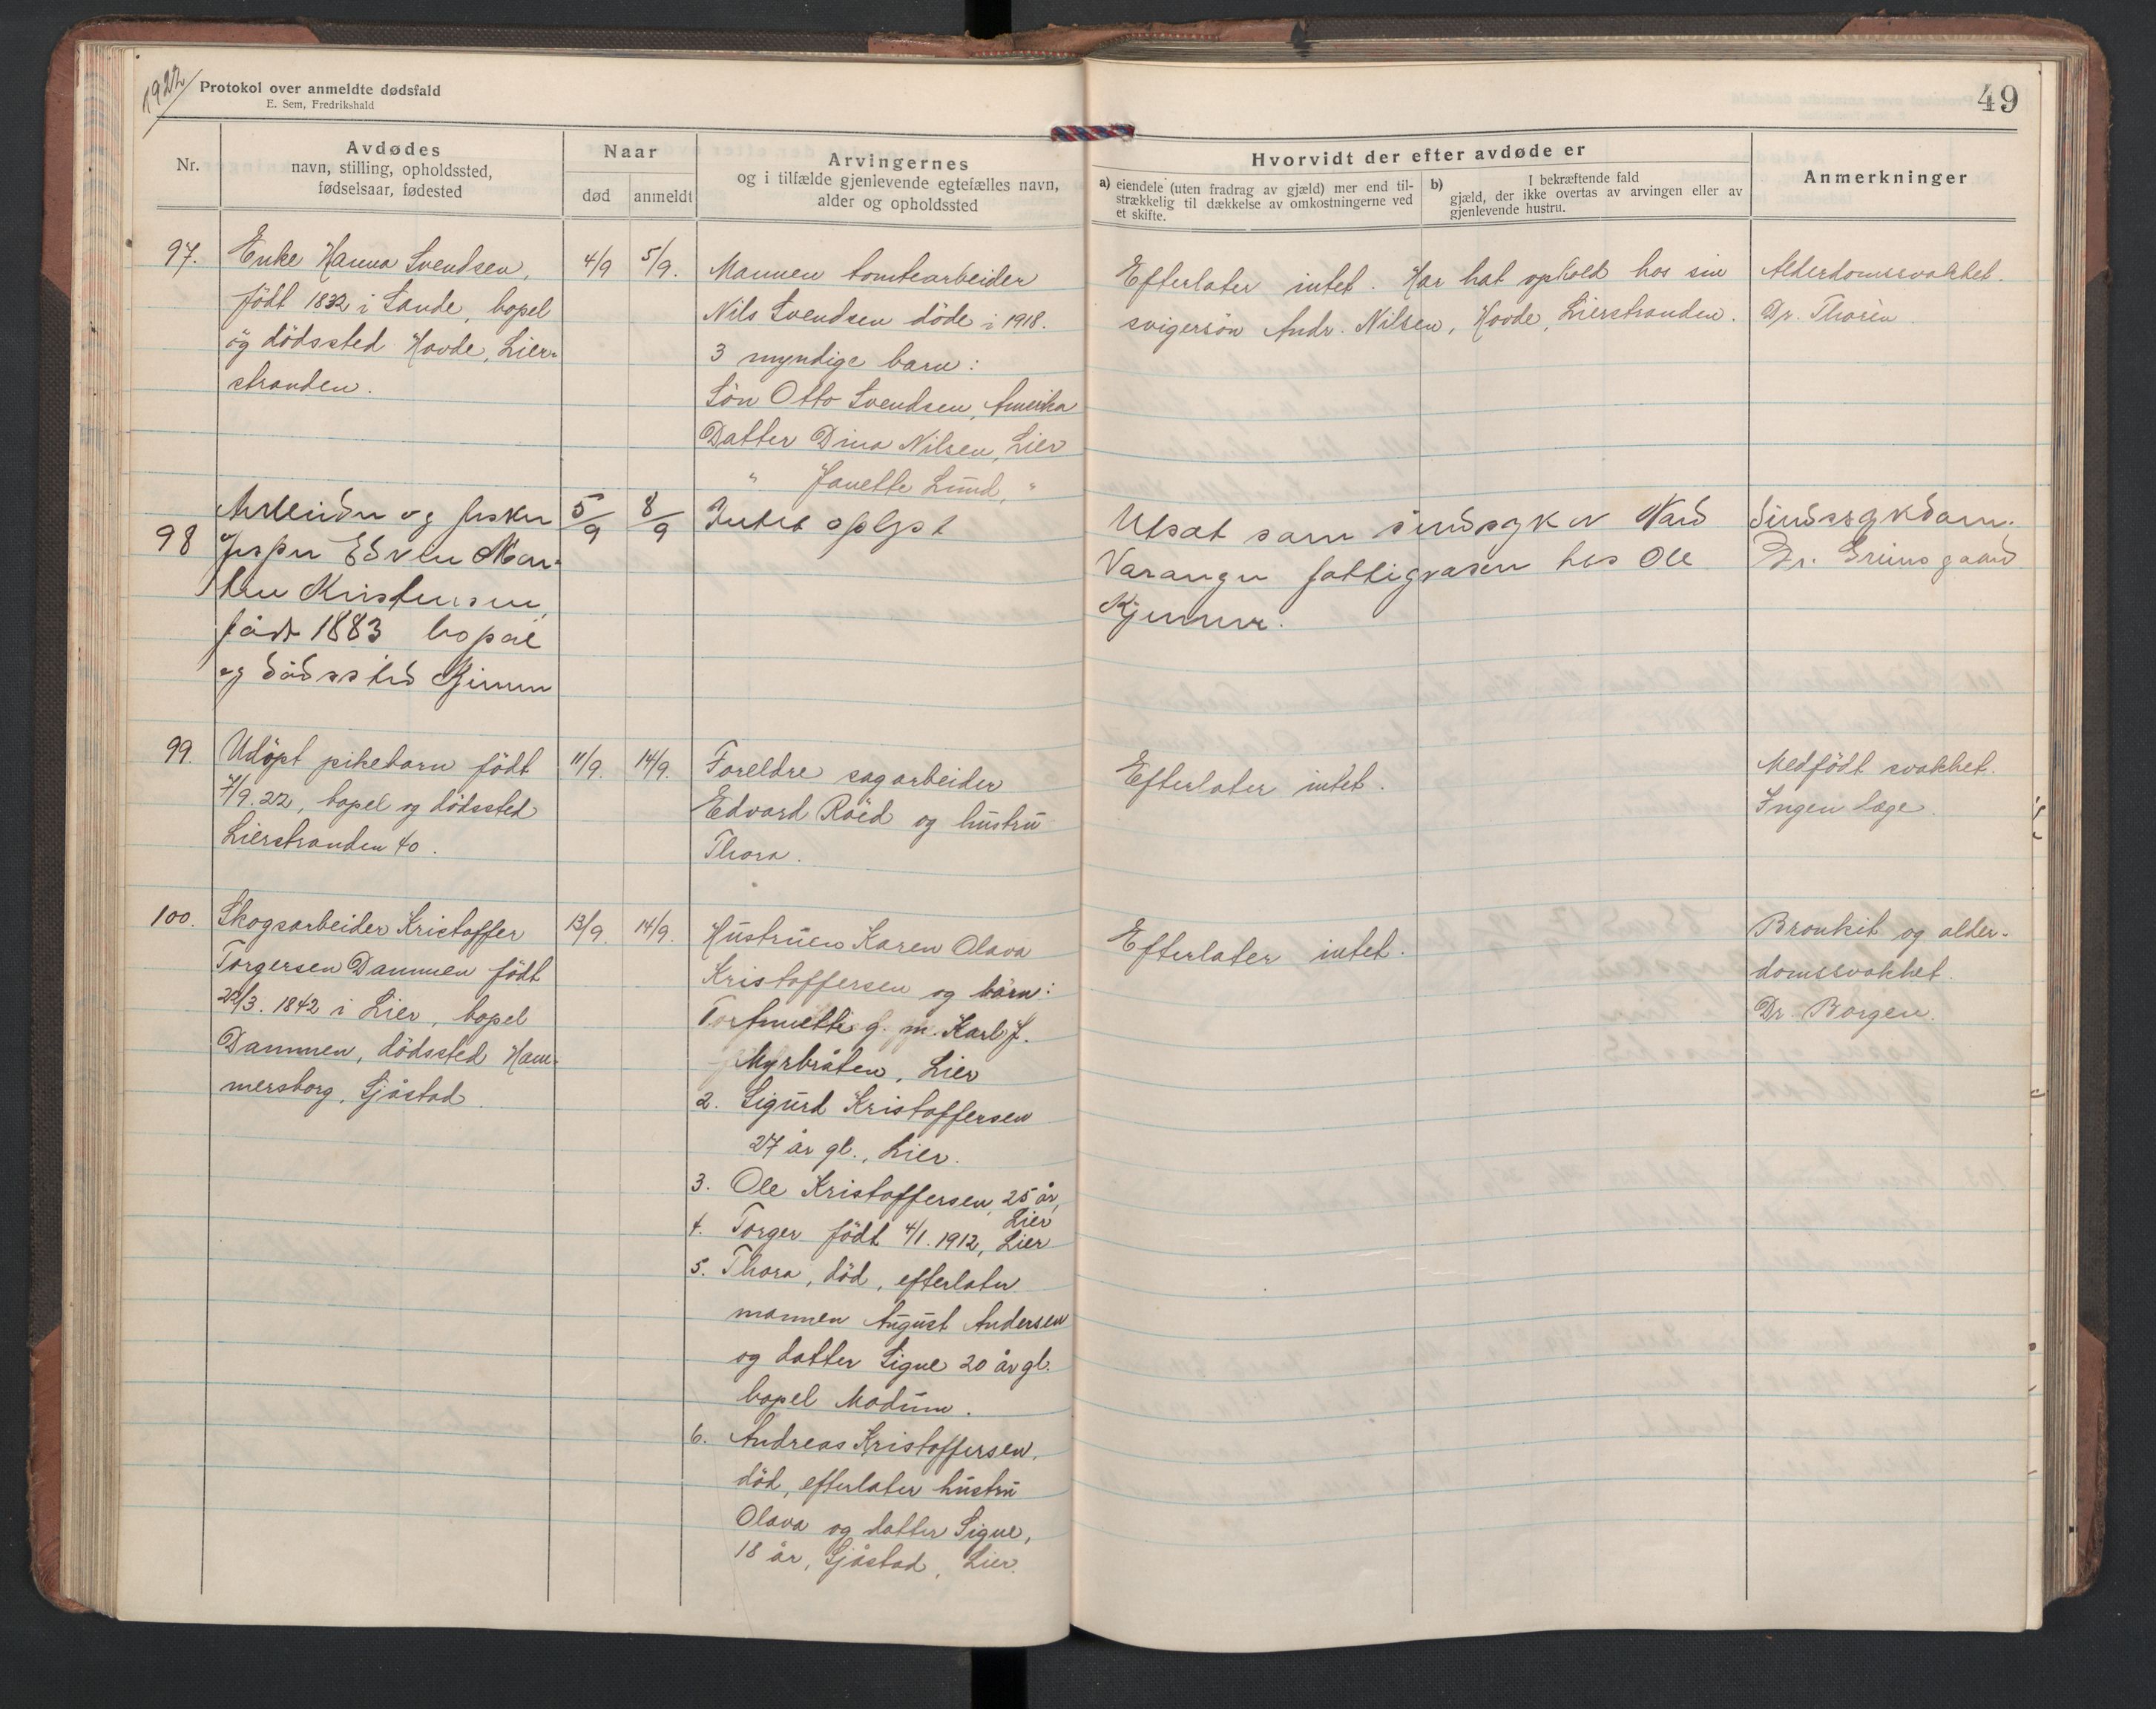 1922
Protokol over anmeldte dødsfald
E. Sem, Fredrikshald
49
Nr.
Avdødes
navn, stilling, opholdssted,
fødselsaar, fødested
Naar
død
anmeldt
Arvingernes
og i tilfælde gjenlevende egtefælles navn,
alder og opholdssted
Hvorvidt der efter avdøde er
a) eiendele (uten fradrag av gjæld) mer end til-
strækkelig til dækkelse av omkostningerne ved
et skifte.
b) I bekræftende fald
gjæld, der ikke overtas av arvingen eller av
gjenlevende hustru.
Anmerkninger
97.
Enke Hanna Svendsen,
født 1832 i Sande, bopel
og dödssted Hovde, Lier-
stranden.
4/9
5/9.
Mannen tomtearbeider
Nils Svendsen döde i 1918.
3 myndige barn:
Sön Otto Svendsen, Amerika
Datter Dina Nilsen, Lier
" Janette Lund, "
Efterlater intet. Har hat ophold hos sin
svigersön Andr. Nilsen, Hovde, Lierstranden.
Alderdomssvakhet.
Dr. Thorèn
98
Arbeider og fisker
Jesper Edvin Mor-
ten Kristensen,
født 1883 bopæl
og dödssted Gjennem
5/9
8/9
Intet oplyst
Utsat som sindssyk av Nord
Varanger fattigvæsen hos Ole
Sindssygdom.
Dr. Grimsgaard
99.
Udöpt pikebarn födt
7/9.22, bopel og dödssted
Lierstranden 40.
11/9.
14/9.
Foreldre sagarbeider
Edvard Röed og hustru
Thora.
Efterlater intet.
Medfödt svakhet.
Ingen læge.
100.
Skogsarbeider Kristoffer
Torgersen Dammen födt
22/3. 1842 i Lier, bopel
Dammen, dödssted Ham-
mersborg, Sjåstad.
13/9.
14/9.
Hustruen Karen Olava
Kristoffersen og bårn:
g. m. Karl J.
Myrbråten, Lier
2. Sigurd Kristoffersen
27 år gl., Lier.
3. Ole Kristoffersen, 25 år,
Lier
4. Torger födt 4/1. 1912, Lier
5. Thora, död, efterlater
mannen August Andersen
og datter Signe 20 år gl.
bopel Modum.
6. Andreas Kristoffersen,
död, efterlater hustru
Olava og datter Signe,
18 år, Sjåstad, Lier.
Efterlater intet.
Bronkit og alder-
domssvakhet.
Dr. Borgen.